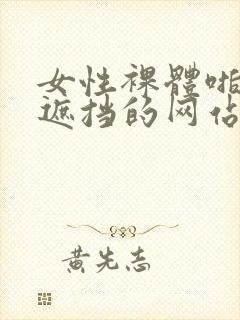 女性裸體啪
遮挡的网佔
黄先志